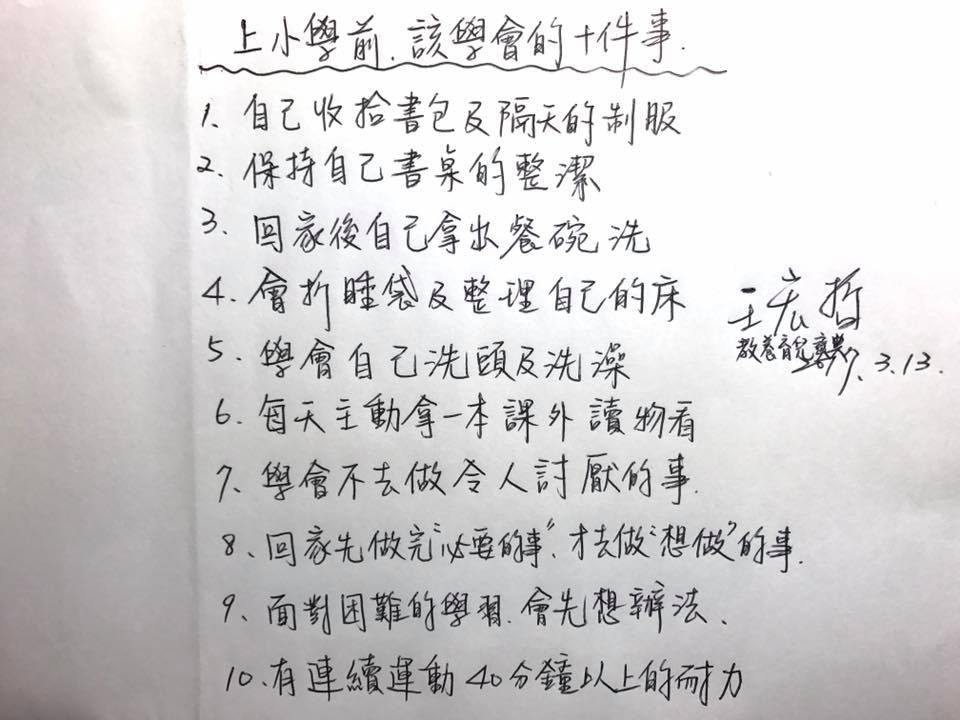 上小學前.該學會的十件事.
1、自己收拾書包及隔天的制服
2、保持自己書桌的整潔
3、回家後自己拿出餐碗洗
4、會折睡袋及整理自己的床
王宏哲
教養育兒寶典 3.13.
5、學會自己洗頭及洗澡
6、每天主動拿一本課外讀物看
7、學會不去做令人討厭的事.
8、回家先做完“必要的事”、才去做“想做”的事.
9、面對困難的學習.會先想辦法、
10、有連續運動40分鐘以上的耐力